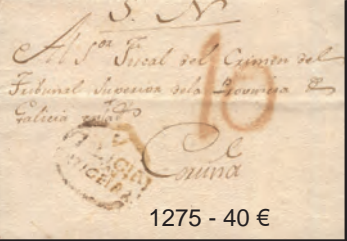 S. N.
Al Sor Fiscal del Crimen del
Tribunal Superior de la Provincia de
Galicia
10
Coruña
1275 - 40 €